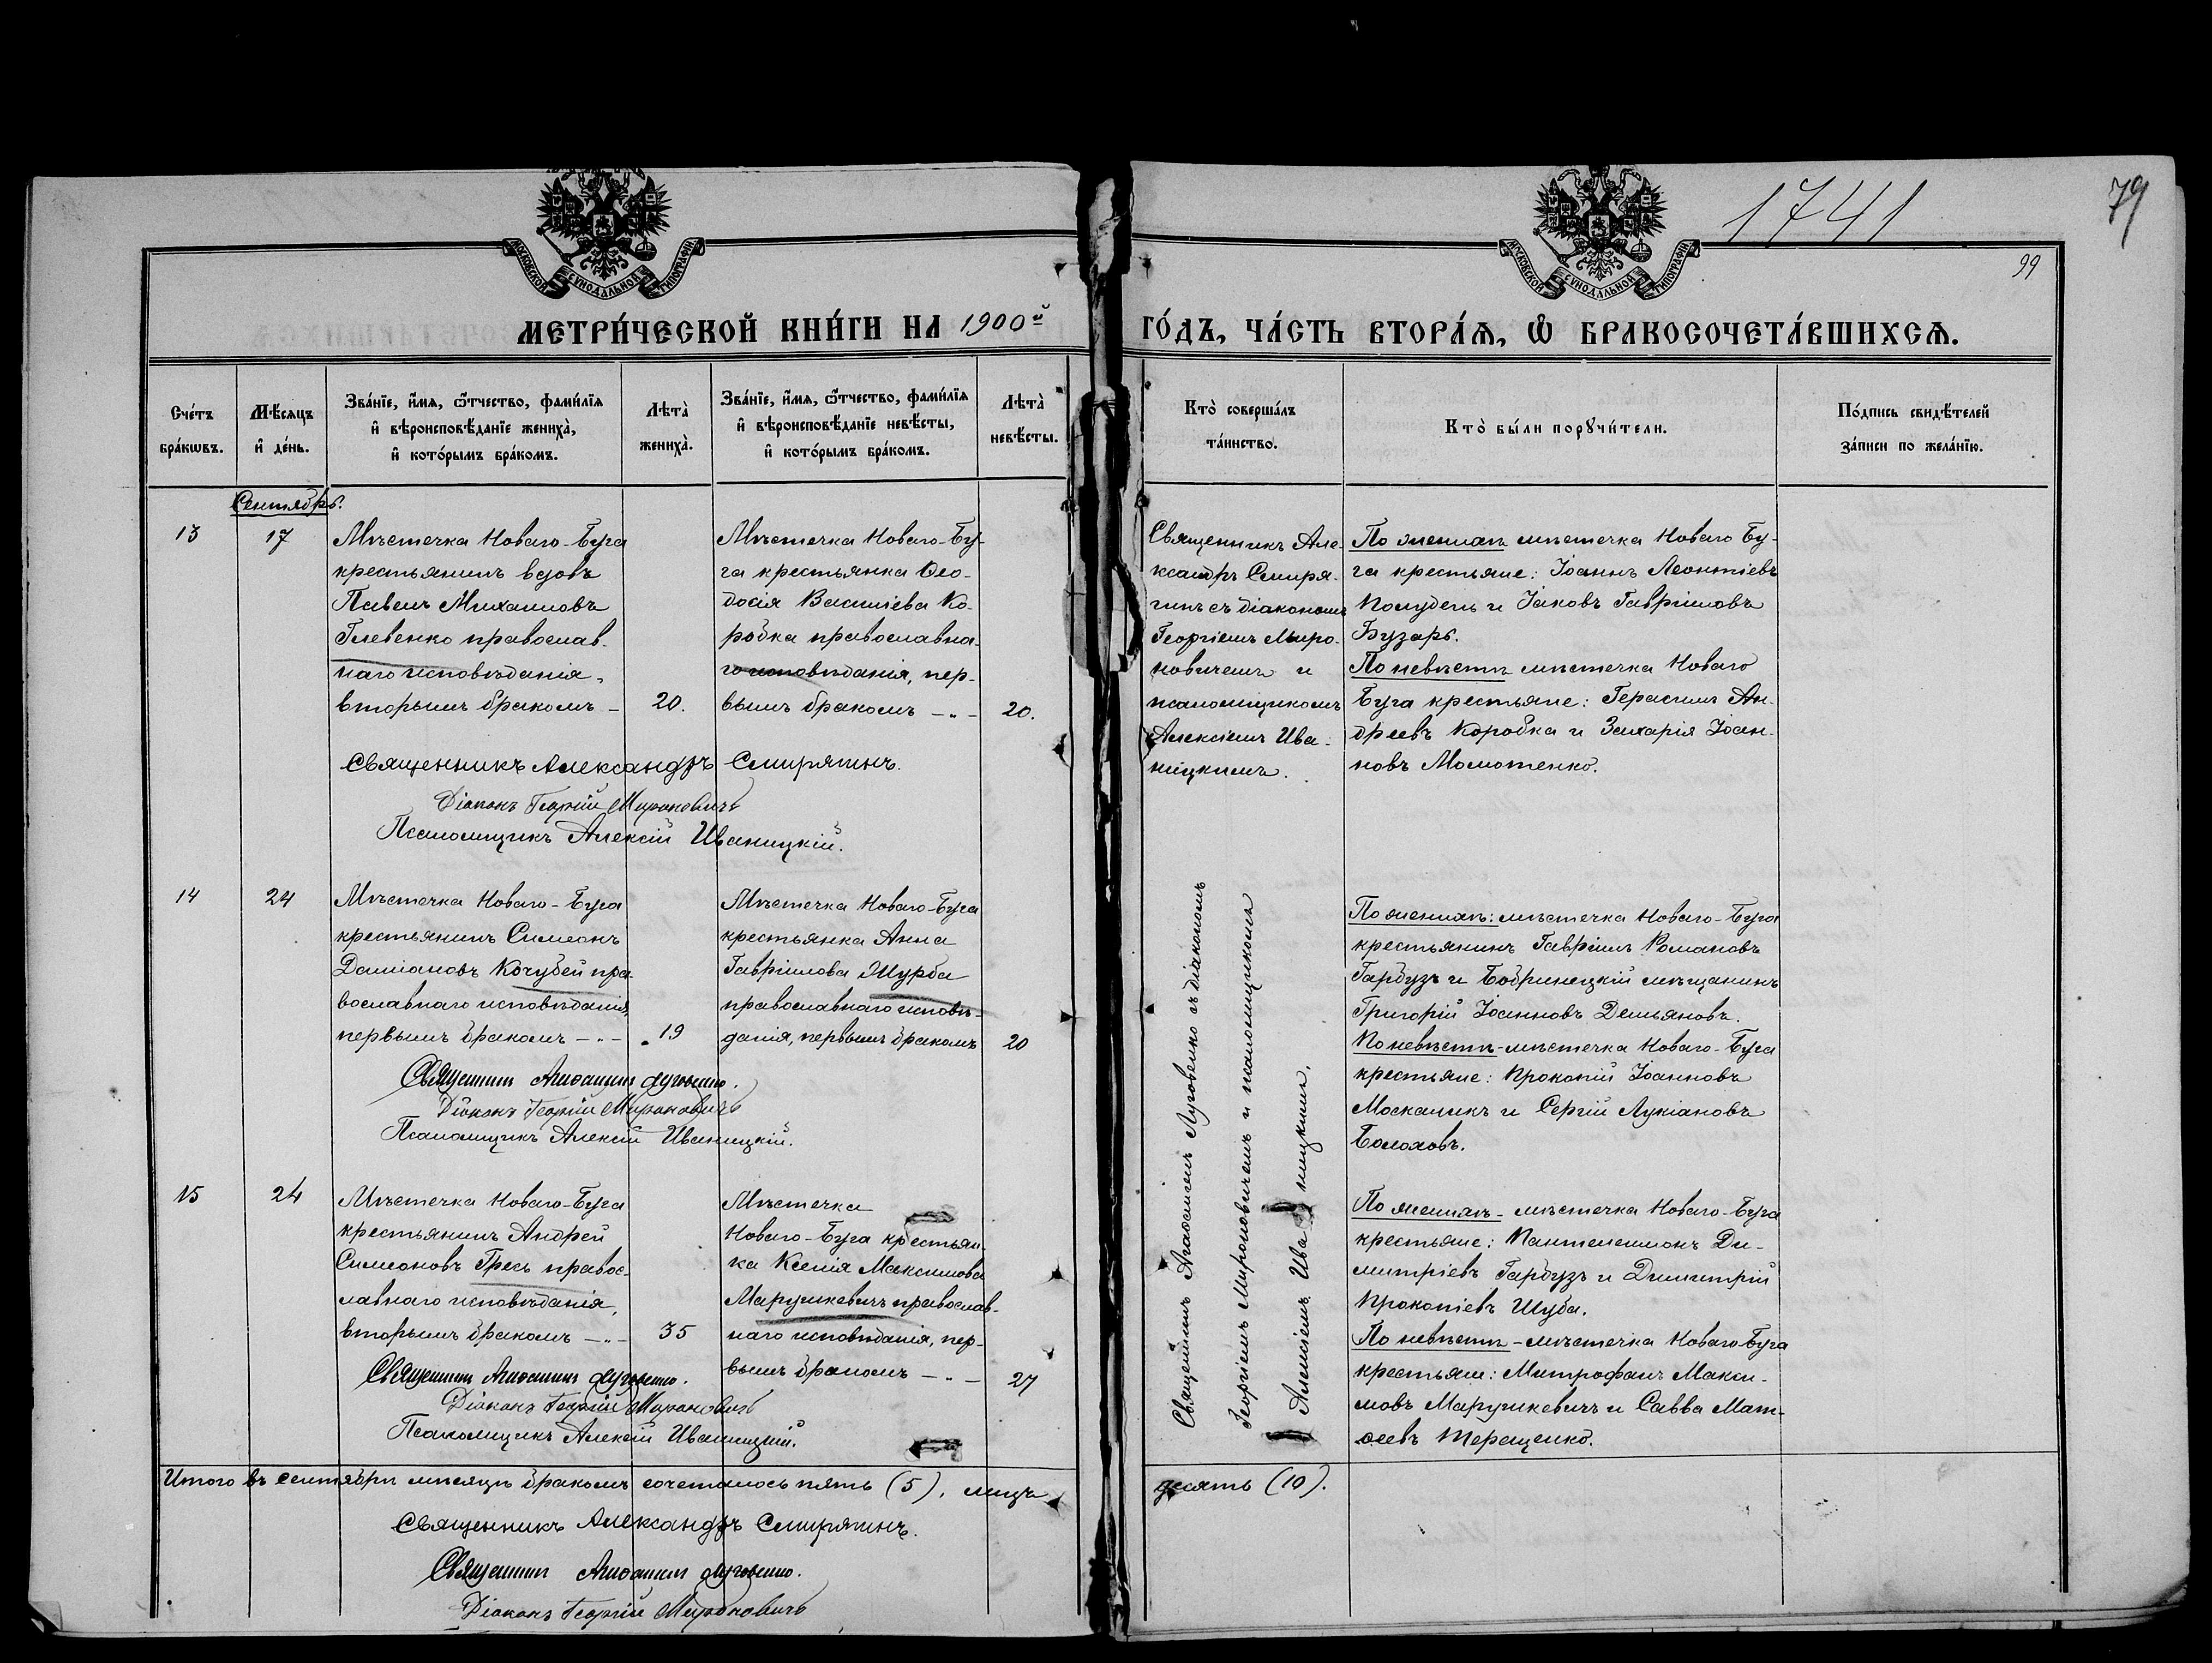 1741
79
99
МОСКОВСКОЙ СѴНОДАЛЬНОЙ ТИПОГРАФІИ
МОСКОВСКОЙ СѴНОДАЛЬНОЙ ТИПОГРАФІИ
МЕТРИ́ЧЕСКОЙ КНИ́ГИ НА 1900й ГО́ДЪ, ЧА́СТЬ ВТОРА́Ѧ, Ѽ БРАКОСОЧЕТА́ВШИХСѦ.
Сче́тъ
бра́кѡвъ.
Мѣ́сѧцъ
и҆ де́нь.
Зва́нїе, и҆́мѧ, ѻ҆́тчество, фами́лїѧ
и҆ вѣроисповѣ́данїе жениха̀,
и҆ кото́рымъ бра́комъ.
Лѣта̀
жениха̀.
Зва́нїе, и҆́мѧ, ѻ҆́тчество, фами́лїѧ
и҆ вѣроисповѣ́данїе невѣ́сты,
и҆ кото́рымъ бра́комъ.
Лѣта̀
невѣ́сты.
Кто̀ соверша́лъ
та́инство.
Кто̀ бы́ли порꙋчи́тели.
По́дпись свидѣ́телей
за́писи по жела́нїю.
Сентябрь.
13
17
Мѣстечка Новаго-Буга
крестьянинъ вдовъ
Павелъ Михаиловъ
Глевенко православ-
наго исповѣданія,
вторымъ бракомъ -
20.
Мѣстечка Новаго-Бу-
га крестьянка Ѳео-
досія Василіева Ко-
робка православна-
го исповѣданія, пер-
вымъ бракомъ -„-
20.
Священникъ Але-
ксандръ Смиря-
гинъ съ діакономъ
Георгіемъ Миро-
новичемъ и
псаломщикомъ
Алексіемъ Ива-
ницкимъ.
По женихѣ мѣстечка Новаго Бу-
га крестьяне: Іоаннъ Леонтіевъ
Полудень и Іаковъ Гавріиловъ
Бузарь.
По невѣстѣ мѣстечка Новаго
Буга крестьяне: Герасимъ Ан-
дреевъ Коробка и Захарія Іоан-
новъ Момотенко.
Священникъ Александръ Смирягинъ.
Діаконъ Георгій Мироновичъ
Псаломщикъ Алексій Иваницкій.
14
24
Мѣстечка Новаго-Буга
крестьянинъ Симеонъ
Даміановъ Кочубей пра-
вославнаго исповѣданія,
первымъ бракомъ -„-
19
Мѣстечка Новаго-Буга
крестьянка Анна
Гавріилова Журба
православнаго исповѣ-
данія, первымъ бракомъ
20
Священникъ Агаѳангелъ Луговенко съ діакономъ
Георгіемъ Мироновичемъ и псаломщикомъ
Алексіемъ Иваницкимъ.
По женихѣ: мѣстечка Новаго-Буга
крестьянинъ Гавріилъ Романовъ
Гарбузъ и Бобринецкій мѣщанинъ
Григорій Іоанновъ Демьяновъ.
По невѣстѣ-мѣстечка Новаго-Буга
крестьяне: Прокопій Іоанновъ
Москаликъ и Сергій Лукіановъ
Болоховъ.
Священникъ Агаѳангелъ Луговенко.
Діаконъ Георгій Мироновичъ
Псаломщикъ Алексій Иваницкій.
15
24
Мѣстечка Новаго-Буга
крестьянинъ Андрей
Симеоновъ Гресь правос-
лавнаго исповѣданія,
вторымъ бракомъ -„-
35
Мѣстечка
Новаго-Буга крестьян-
ка Ксенія Максимова
Марушкевичъ православ-
наго исповѣданія, пер-
вымъ бракомъ -„-
27
По женихѣ- мѣстечка Новаго-Буга
крестьяне: Пантелеимонъ Ди-
митріевъ Гарбузъ и Димитрій
Прокопіевъ Шуба.
По невѣстѣ -мѣстечка Новаго-Буга
крестьяне: Митрофанъ Макси-
мовъ Марушкевичъ и Савва Мат-
ѳеевъ Терещенко.
Священникъ Агаѳангелъ Луговенко.
Діаконъ Георгій Мироновичъ
Псаломщикъ Алексій Иваницкій.
Итого въ сентябрѣ мѣсяцѣ бракомъ сочеталось пять (5), лицъ десять (10).
Священникъ Александръ Смирягинъ.
Священникъ Агаѳангелъ Луговенко.
Діаконъ Георгій Мироновичъ